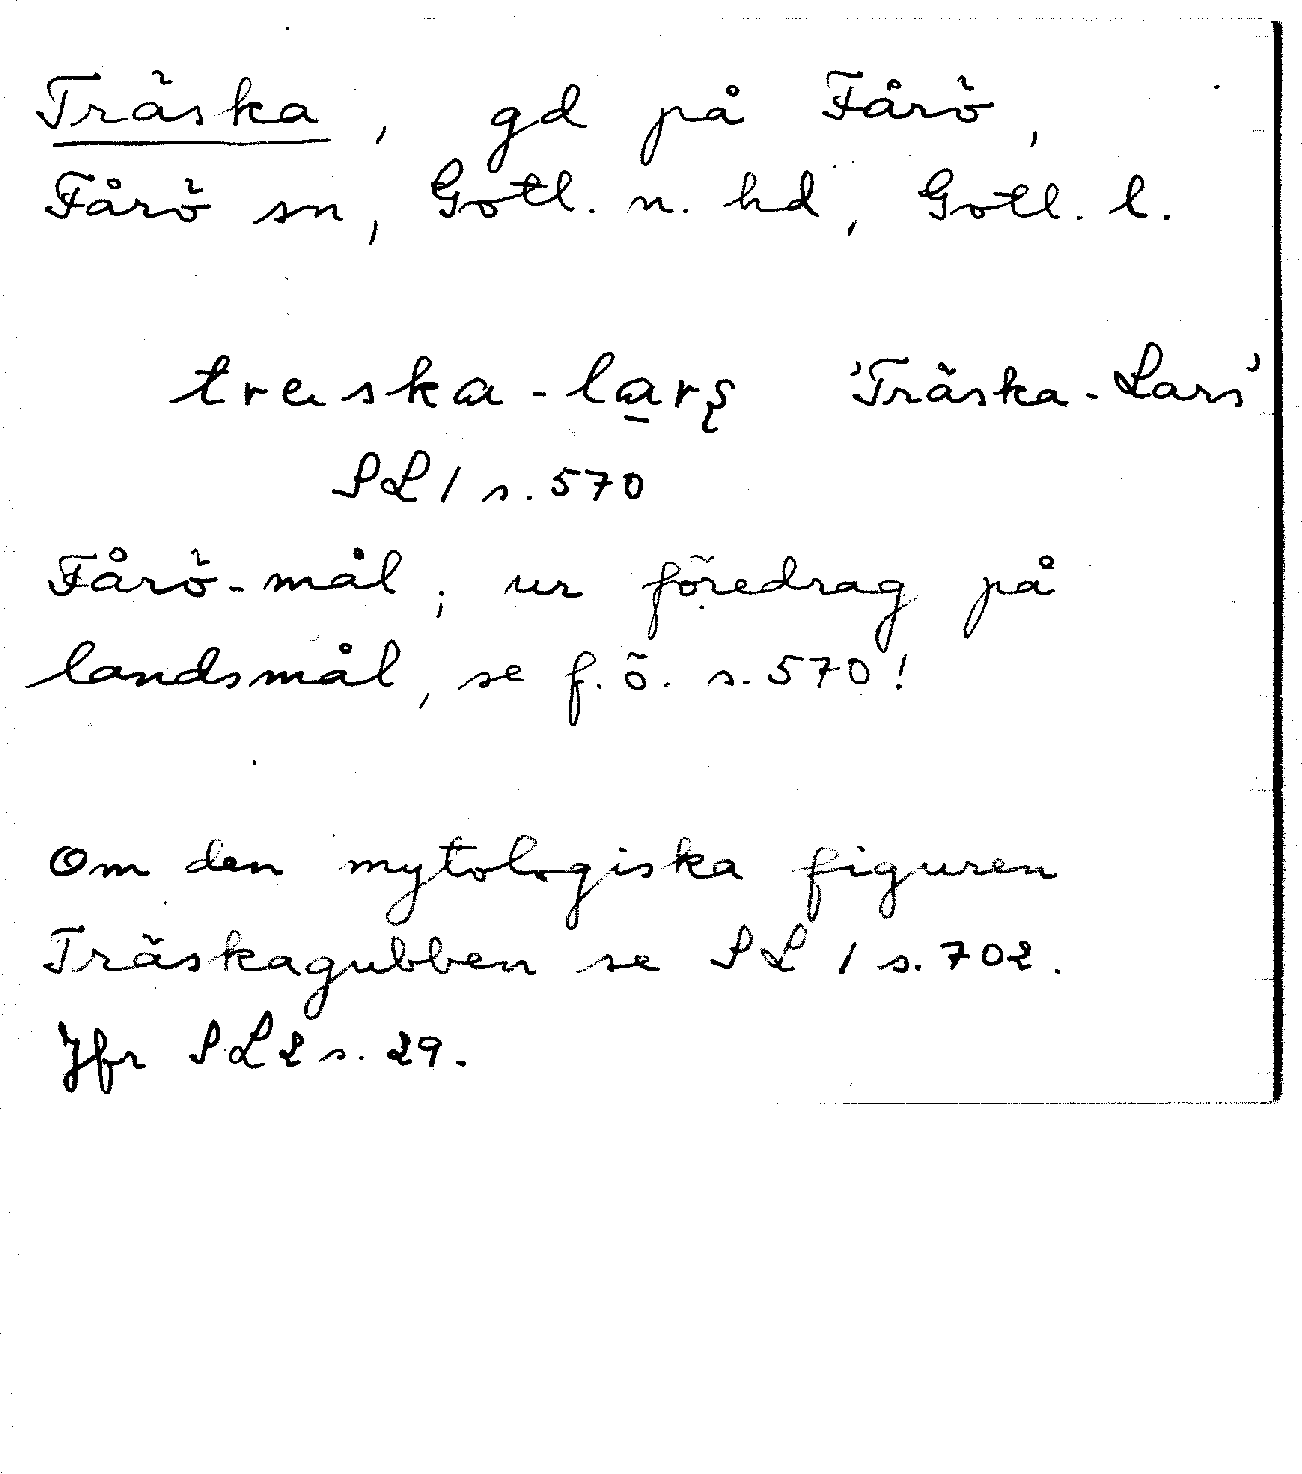 Träska, gd på Fårö,
Fårö sn, Gotl. n. hd, Gotl. l.
träska-lars 'Träska-Lars'
SL 1 s. 570
Fårö-mål; ur föredrag på
landsmål, se f.ö. s. 570!
Om den mytologiska figuren
Träskagubben se SL 1 s. 702.
Jfr SL 2 s. 29.